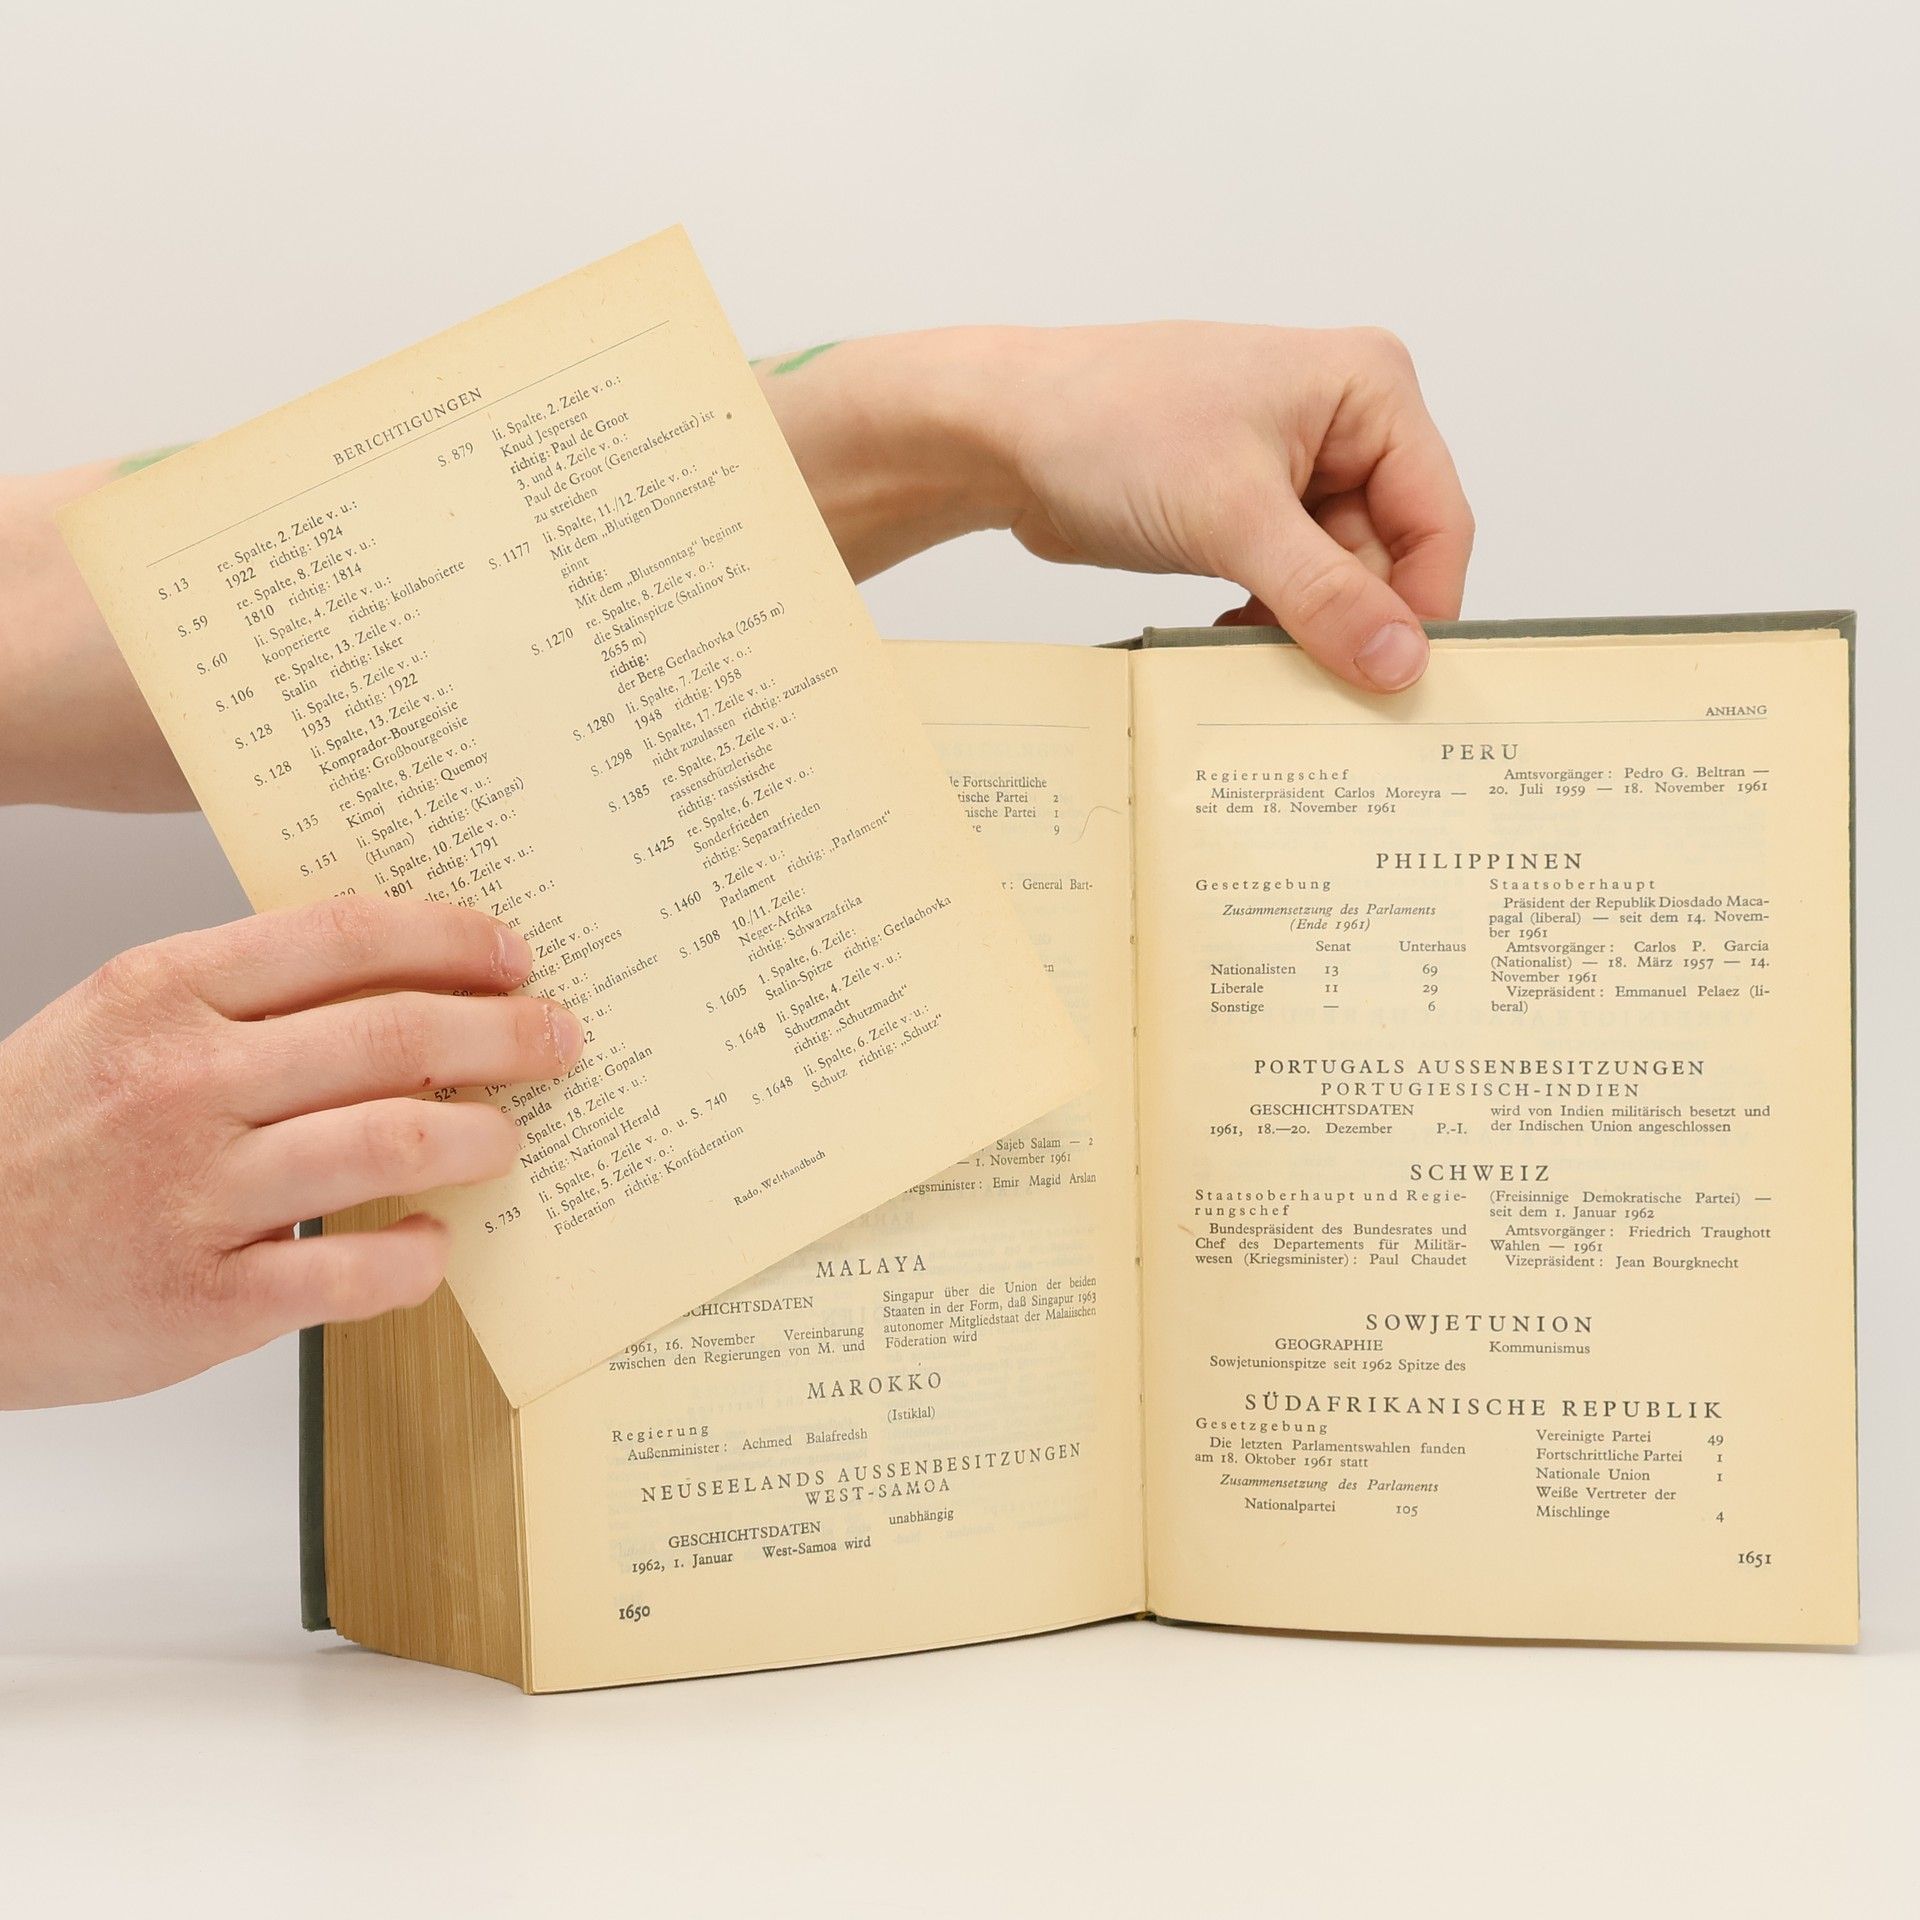 BERICHTIGUNGEN
S. 13 re. Spalte, 2. Zeile v. u.:
1922 richtig: 1924
S. 59 re. Spalte, 8. Zeile v. u.:
1810 richtig: 1814
S. 60 li. Spalte, 4. Zeile v. u.:
kooperierte richtig: kollaborierte
S. 106 re. Spalte, 13. Zeile v. o.:
Stalin richtig: Isker
S. 128 li. Spalte, 5. Zeile v. u.:
1933 richtig: 1922
S. 128 li. Spalte, 13. Zeile v. u.:
Komprador-Bourgeoisie
richtig: Großbourgeoisie
S. 135 re. Spalte, 8. Zeile v. o.:
Kimoj richtig: Quemoy
S. 151 li. Spalte, 1. Zeile v. u.:
(Hunan) richtig: (Kiangsi)
li. Spalte, 10. Zeile v. o.:
1801 richtig: 1791
16. Zeile v. u.:
141
Zeile v. o.:
Zeile v. o.:
Employees
v. u.:
indianischer
v. u.:
524
Spalte, 8. Zeile v. u.:
richtig: Gopalan
Spalte, 18. Zeile v. u.:
National Chronicle
richtig: National Herald
li. Spalte, 6. Zeile v. o. u. S. 740
S. 733 li. Spalte, 5. Zeile v. o.:
Föderation richtig: Konföderation
S. 879 li. Spalte, 2. Zeile v. o.:
Knud Jespersen
richtig: Paul de Groot
3. und 4. Zeile v. o.:
Paul de Groot (Generalsekretär) ist
zu streichen
S. 1177 li. Spalte, 11./12. Zeile v. o.:
Mit dem „Blutigen Donnerstag“ be-
ginnt
richtig:
Mit dem „Blutsonntag“ beginnt
S. 1270 re. Spalte, 8. Zeile v. o.:
die Stalinspitze (Stalinov Štit,
2655 m)
richtig:
der Berg Gerlachovka (2655 m)
S. 1280 li. Spalte, 7. Zeile v. o.:
1948 richtig: 1958
S. 1298 li. Spalte, 17. Zeile v. u.:
nicht zuzulassen richtig: zuzulassen
S. 1385 re. Spalte, 25. Zeile v. u.:
rassenschützlerische
richtig: rassistische
S. 1425 re. Spalte, 6. Zeile v. o.:
Sonderfrieden
richtig: Separatfrieden
S. 1460 3. Zeile v. u.:
Parlament richtig: „Parlament“
S. 1508 10./11. Zeile:
Neger-Afrika
richtig: Schwarzafrika
S. 1605 1. Spalte, 6. Zeile:
Stalin-Spitze richtig: Gerlachovka
S. 1648 li. Spalte, 4. Zeile v. u.:
Schutzmacht
richtig: „Schutzmacht“
S. 1648 li. Spalte, 6. Zeile v. u.:
Schutz richtig: „Schutz“
Rado, Welthandbuch
Fortschrittliche
Partei 2
Partei 1
9
General Bart-
Sajeb Salam — 2
— 1. November 1961
Emir Magid Arslan
MALAYA
1961, 16. November Vereinbarung
zwischen den Regierungen von M. und
Singapur über die Union der beiden
Staaten in der Form, daß Singapur 1963
autonomer Mitgliedstaat der Malaiischen
Föderation wird
MAROKKO
Regierung
Außenminister: Achmed Balafredsh
(Istiklal)
NEUSEELANDS AUSSENBESITZUNGEN
WEST-SAMOA
GESCHICHTSDATEN
1962, 1. Januar West-Samoa wird
unabhängig
1650
ANHANG
PERU
Regierungschef
Ministerpräsident Carlos Moreyra —
seit dem 18. November 1961
Amtsvorgänger: Pedro G. Beltran —
20. Juli 1959 — 18. November 1961
PHILIPPINEN
Gesetzgebung
Zusammensetzung des Parlaments
(Ende 1961)
Senat Unterhaus
Nationalisten 13 69
Liberale 11 29
Sonstige — 6
Staatsoberhaupt
Präsident der Republik Diosdado Maca-
pagal (liberal) — seit dem 14. Novem-
ber 1961
Amtsvorgänger: Carlos P. Garcia
(Nationalist) — 18. März 1957 — 14.
November 1961
Vizepräsident: Emmanuel Pelaez (li-
beral)
PORTUGALS AUSSENBESITZUNGEN
PORTUGIESISCH-INDIEN
GESCHICHTSDATEN
1961, 18.—20. Dezember P.-I.
wird von Indien militärisch besetzt und
der Indischen Union angeschlossen
SCHWEIZ
Staatsoberhaupt und Regie-
rungschef
Bundespräsident des Bundesrates und
Chef des Departements für Militär-
wesen (Kriegsminister): Paul Chaudet
(Freisinnige Demokratische Partei) —
seit dem 1. Januar 1962
Amtsvorgänger: Friedrich Traughott
Wahlen — 1961
Vizepräsident: Jean Bourgknecht
SOWJETUNION
GEOGRAPHIE
Sowjetunionspitze seit 1962 Spitze des
Kommunismus
SÜDAFRIKANISCHE REPUBLIK
Gesetzgebung
Die letzten Parlamentswahlen fanden
am 18. Oktober 1961 statt
Zusammensetzung des Parlaments
Nationalpartei 105
Vereinigte Partei 49
Fortschrittliche Partei 1
Nationale Union 1
Weiße Vertreter der
Mischlinge 4
1651